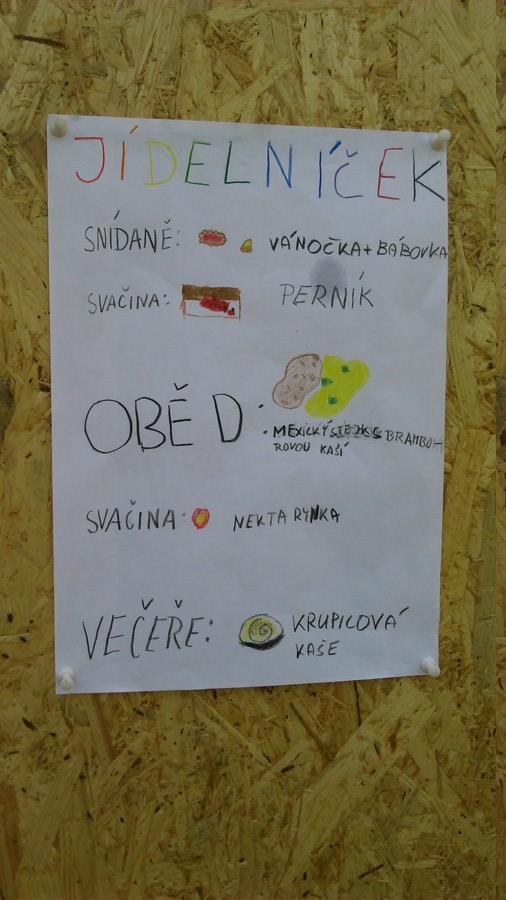 JÍDELNÍČEK
SNÍDANĚ: VÁNOČKA + BÁBOVKA
SVAČINA: PERNÍK
OBĚD:
MEXICKÝ S BRAMBO-
ROVOU KAŠÍ
SVAČINA: NEKTARYNKA
VEČEŘE: KRUPICOVÁ
KAŠE